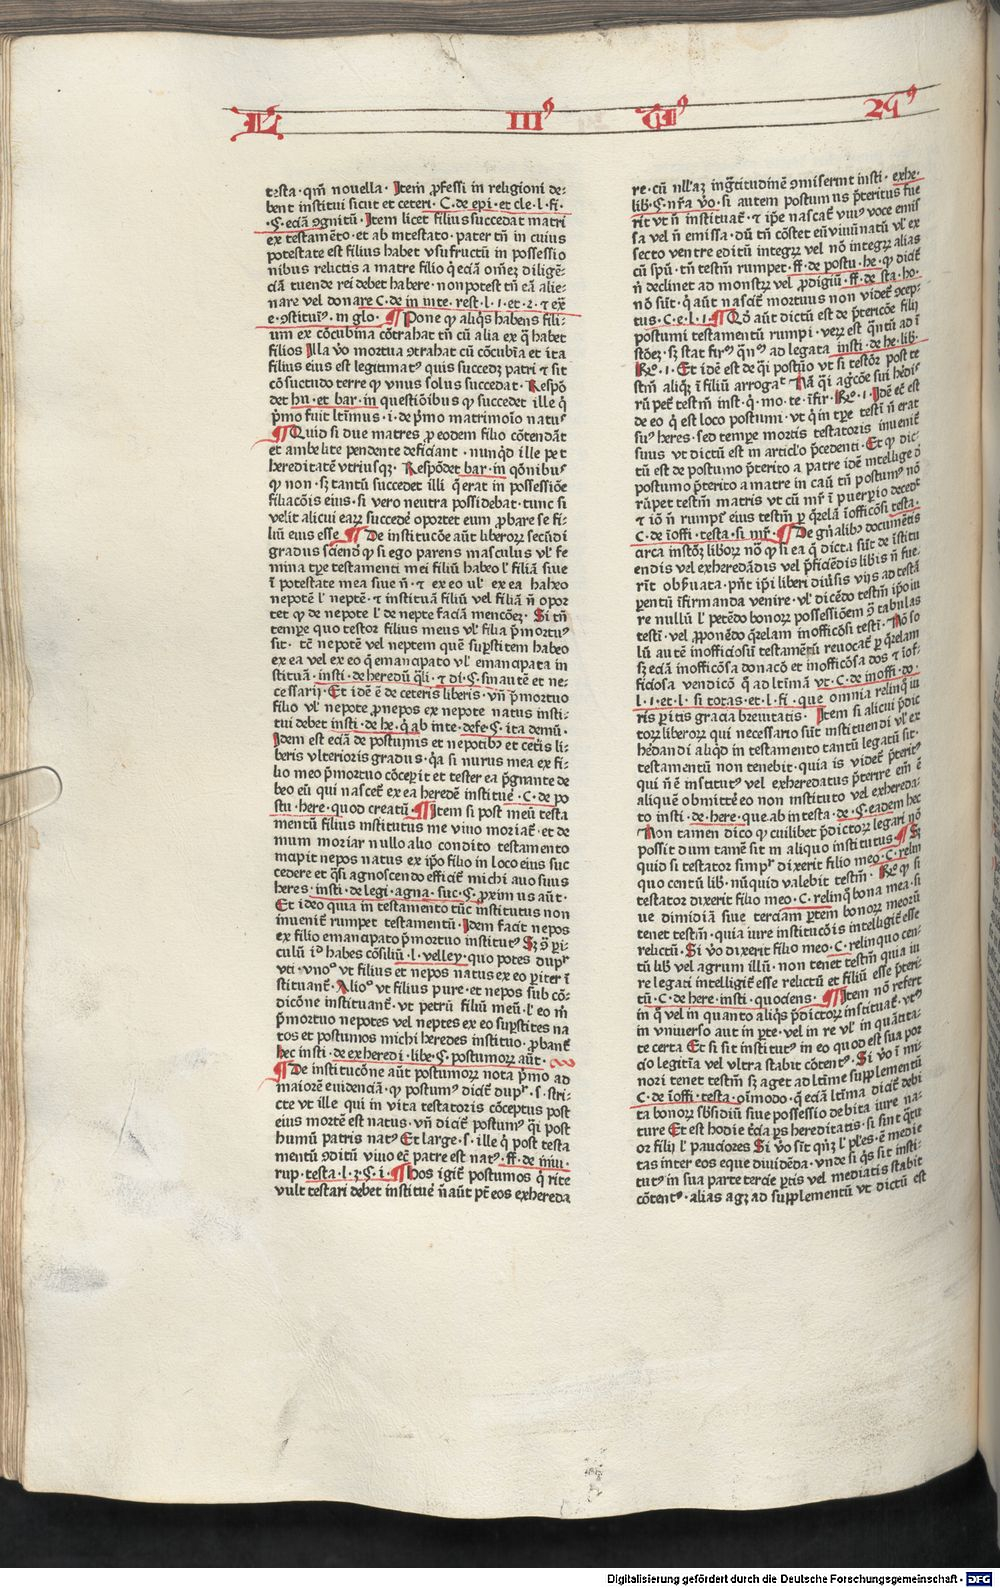 L III⁹ T 24⁹
testa · qm̄ nouella · Item ꝓfessi in religioni de⸗
bent institui sicut et ceteri · C · de epi · et cle · l · fi ·
· ꝯgnitū · Item licet filius succedat matri
ex testamēto · et ab intestato · pater tn̄ in cuius
potestate est filius habet vsufructū in possessio
nibus relictis a matre filio
tuende rei debet habere · non potest tn̄ eā alie⸗
nare vel donare C · de in inte · rest · l · 1 · et · 2 ·
in glo · ¶ Pone aliqs habens fili⸗
um ex cōcubina cōtrahat tn̄ cū alia ex q̄ habet
filios Illa v̄o mortua ꝯtrahat cū cōcubīa et ita
filius eius est legitimatꝰ
cōsuetudo terre vnus solus succedat · Respō
det hn · et bar · in questiōibus succedet ille q̄
p̄mo fuit ltīmus · i · de p̄mo matrimoīo natuꝰ
¶ Quid si due matres ꝓ eodem filio cōtendāt
et ambe lite pendente deficiant · nunqd ille pet
hereditatē vtriusqꝫ · Respōdet bar · in qōnibuꝰ
non · sꝫ tantū succedet illi q̄ erat in possessiōe
filiacōis eius · si vero neutra possidebat · tunc si
velit alicui earꝝ oportet eum ꝓbare se fi⸗
liū eius esse ¶ De institucōe aūt liberorꝝ secūdi
gradus si ego parens masculus vl̄ fe
mina tꝑe testamenti mei filiū habeo l̄ filiā siue
ī potestate mea siue n̄ · ⁊ ex eo ul̄ ex ea habeo
nepotē l̄ neptē · ⁊ instituā filiū vel filiā n̄ opor
tet de nepote l̄ de nepte faciā Si tn̄
tempe quo testor filius meus vl̄ filia p̄mortuꝰ
sit · tē nepotē vel neptem quē suꝑstitem habeo
ex ea vel ex eo q̄ emancipato vl̄ emancipata in
stituā · insti · de heredū · ⁊ di · § · sin autē et ne⸗
cessarij · Et idē ē de ceteris liberis · vn̄ p̄mortuo
filio vl̄ nepote ꝓnepos ex nepote natus insti⸗
tui debet insti · de he · q̄ ab inte · defe § · ita demū ·
Idem est eciā de postumis et nepotibꝰ et li⸗
beris vlterioris gradus · qa si nurus mea ex fi⸗
lio meo p̄mortuo cōceꝑit et tester ea p̄gnante de
beo eū qui nascet̄ ex ea heredē · C · de po
stu · here · quod creatū · ¶ Item si post meū testa
mentū filius institutus me viuo moriat̄ · et de
mum moriar nullo alio condito testamento
incipit nepos natus ex ip̄o filio in loco eius suc
cedere et agnoscendo efficit̄ michi auo suus
heres · insti · de legi · agna · suc · § · ꝓxim us aūt ·
Et ideo quia in testamento tūc institutus non
inuenit̄ rumpet testamentū · Idem facit nepos
ex filio emancipato p̄mortuo institutꝰ
culū habes cōsiliū · l · velley · quo potes
vti · vnoꝰ vt filius et nepos natus ex eo ꝑiter ī
stituant̄ · Alioꝰ vt filius pure · et nepos sub cō⸗
dicōne instituant̄ · vt petrū filiū meū · l̄ eo m̄
p̄mortuo nepotes vel neptes ex eo suꝑstites na
tos et postumos michi heredes instituo · ꝓbant̄
hec insti · de exheredi · libe · § · postumorꝝ aūt ·
¶ De institucōne aūt postumorꝝ nota p̄mo ad
maiorē euidenciā · postumꝰ dicit̄ · s · stri⸗
cte vt ille qui in vita testatoris cōceptus post
eius mortē est natus · vn̄ dicit̄ postumꝰ qi post
humū patris natꝰ Et large · s · ille q̄ post testa
mentū ꝯditū viuo patre est natꝰ · ff · de iniu ·
rup · testa · l · 3 · § · i · ¶ Hos igit̄ postumos q̄ rite
vult testari debet n̄ aūt pt̄ eos exhereda
re · cū ꝯmiserint insti · exhe ·
lib · § · nr̄a v̄o · si autem postumus p̄teritus fue
rit vt n̄ instituat̄ · ⁊ ip̄e nascat̄ viuꝰ voce emis
sa vel n̄ emissa · dū tn̄ cōstet eū viuū natū vl̄ ex
secto ventre editū integrꝝ vel nō integrꝝ alias
cū spū · tn̄ testm̄ rumpet · ff · de postu · he · dicit̄
n̄ declinet ad monstrꝝ vel ꝓdigiū · ff · de sta · ho ·
nō sūt · q̄ aūt nascit̄ mortuus non videt̄ ꝯcep⸗
tus · C · e · l · 1 · ¶ aūt dictū est de p̄tericōe filij
postumi testamentū rumpi · verꝝ est q̄ntū ad ī
stōeꝫ · sꝫ stat ad legata insti · de he · lib ·
· 1 · Et idē est de postꝙ̄ vt si testor post te
stm̄ aliqꝫ ī filiū arrogat sui hēdis
rūpet testm̄ inst · q · mo · te · īfir · · 1 · Idē est
de eo q̄ est loco postumi · vt in tꝑe testī n̄ erat
suꝰ heres · sed tempe mortis testatoris inuenit̄
suus vt dictū est in p̄cedenti · Et dic⸗
tū est de postumo p̄terito a patre idē intellige
postumo p̄terito a matre in cau tn̄ postumꝰ nō
rūpet testm̄ matris vt cū mr̄ ī puerꝑio decedt̄
⁊ iō n̄ rumpit̄ eius testm̄ ꝑ q̄relā īofficōsi testa ·
C · de īoffi · testa · si mr̄ · ¶ De gn̄alibꝰ documētis
circa liborꝝ nō si ea q̄ dicta sūt de īstitu
endis vel exheredādis vel p̄ficiēdis libis n̄ fue⸗
rīt obꝰuata · pn̄t ip̄i liberi diuīsis vijs ad testā
parentū īfirmanda venire · vl̄ dicēdo testm̄ ip̄o iu
re nullū l̄ petēdo bonorꝝ possessiōem ꝯ tabulas
testi · vel ꝓponēdo q̄relam inofficōsi testi · Nō so
lū autē inofficiosū testamētū reuocat̄ ꝑ q̄relam
sꝫ eciā inofficōsa donacō et inofficōsa dos ⁊ iof⸗
ficiosa vendicō q̄ ad ltīmā vt · C · de inoffi · do ·
l · 1 · et · l · si totas · et · l · fi · que omnia relinq̄ iu
ris ꝑitis gracia breuitatis · Item si alicui p̄dic
torꝝ liberorꝝ qui necessario sūt instituendi vl̄ ex
hēdandi aliqd in testamento tantū legatū sit ·
testamentū non tenebit · quia is videt̄ p̄teritꝰ
qui n̄ ē institutꝰ vel exheredatus p̄terire em̄ ē
aliquē obmittē eo non instituto vel exhereda⸗
to insti · de here · que ab intesta · de § · eadem hec
Non tamen dico cuilibet p̄dictorꝝ legari nō
possit dum tamē sit in aliquo institutus · ¶
quid si testator dixerit filio meo · C · relin
quo centū lib · nūquid valebit testm̄ · si
testator dixerit filio meo · C · relinq̄ bona mea · si
ue dimidiā siue terciam ꝑtem bonorꝝ meorū
tenet testm̄ · quia iure institucōis intelligit̄ esse
relictū · Si v̄o dixerit filio meo · C · relinquo cen⸗
tū lib̄ vel agrum illū · non tenet testm̄ quia iu
re legati intelligit̄ esse relictū et filiū esse p̄teri⸗
tū · C · de here · insti · quociens · ¶ Item nō refert
in q̄ vel in quanto aliqs p̄dictorꝝ instituat̄ · vtꝰ
in vniuerso aut in ꝑte · vel in re vl̄ in quātita⸗
te certa Et si sit institutꝰ in eo quod est sua por
cio legitīa vel vltra stabit cōtentꝰ · Si v̄o ī mi⸗
nori tenet testm̄ sꝫ aget ad ltīme supplementū
C · de īoffi · testa · oīmodo · q̄ eciā ltīma dicit̄ debi
ta bonorꝝ sbsidiū siue possessio debita iure na⸗
ture Et est hodie ps hereditatis · si sint
oꝛ filij l̄ pauciores Si v̄o sīt qnꝫ l̄ · ē medie
tas inter eos eque diuidēda · vnde si qs sit insti⸗
tutꝰ in sua parte tercie ꝑtis vel medietatis stabit
cōtentꝰ · alias agꝫ ad supplementū vt dictū est
Digitalisierung gefördert durch die Deutsche Forschungsgemeinschaft - DFG